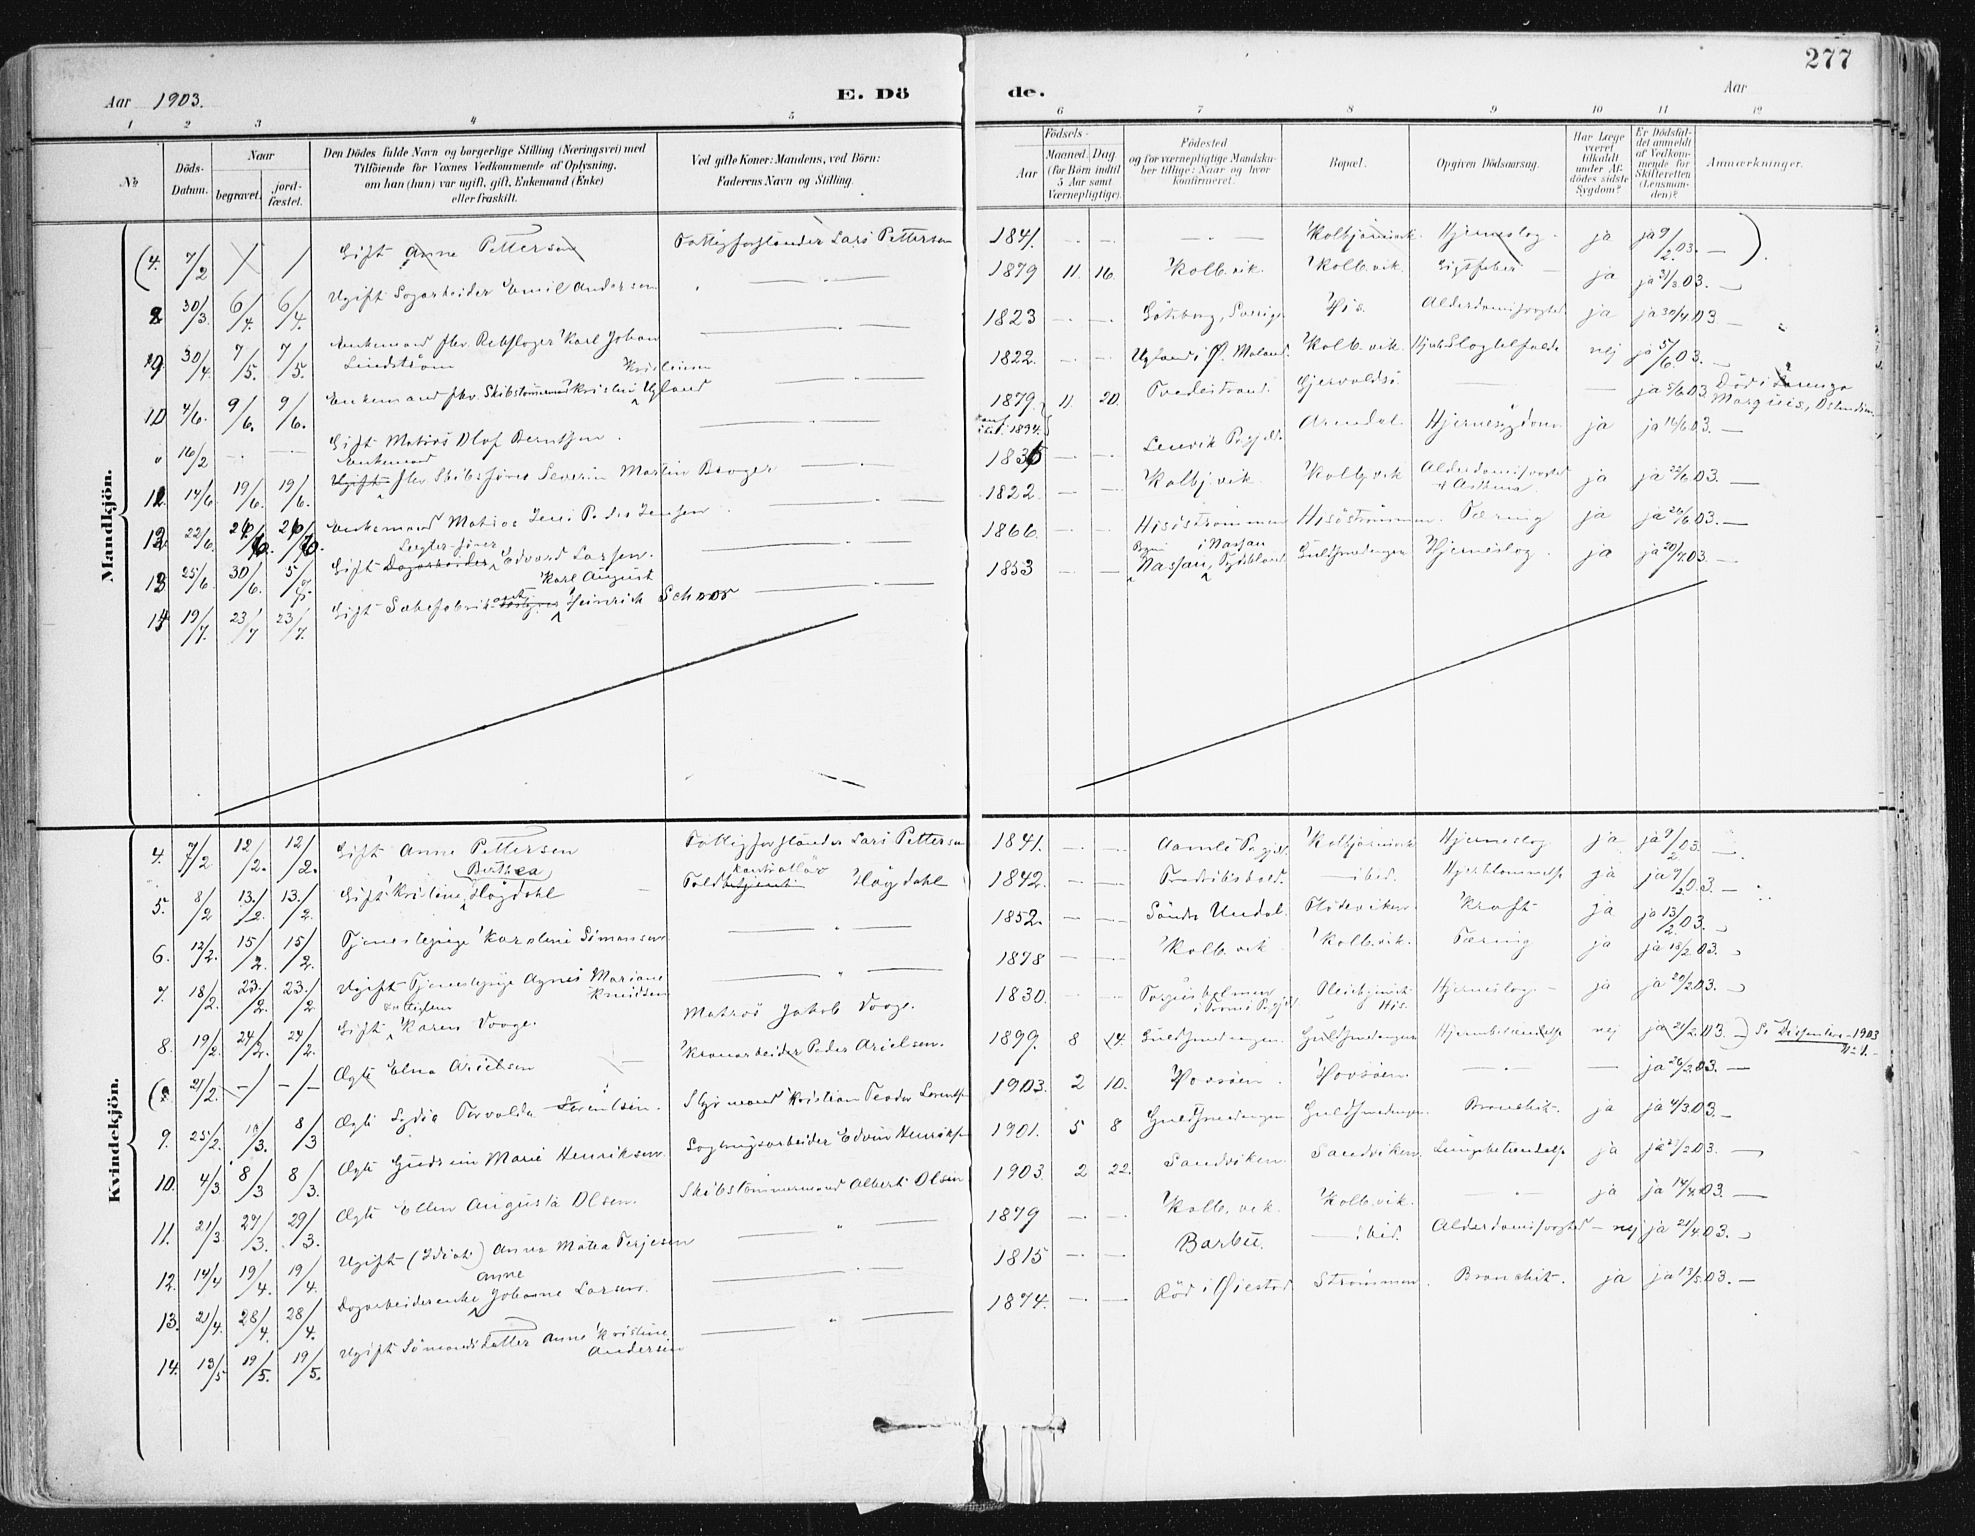 277
Aar 1903.
E. Dö
de.
Aar
1 2 3 4 5
6 7 8 9 10 11 12
No
Döds-Datum.
Naar
begravet.
jord-fæstet.
Den Dödes fulde Navn og borgerlige Stilling (Næringsvei) med
Tilföiende for Voxnes Vedkommende af Oplysning,
om han (hun) var ugift, gift, Enkemand (Enke)
eller fraskilt.
Ved gifte Koner: Mandens, ved Börn:
Faderens Navn og Stilling.
Födsels-
Aar
Maaned. Dag.
(for Börn indtil
5 Aar samt
Værnepligtige).
Födested
og for værnepligtige Mandska-
ber tillige: Naar og hvor
konfirmeret.
Bopæl.
Opgiven Dödsaarsag.
Har Læge
været
tilkaldt
under Af-
dödes sidste
Sygdom?
Er Dödsfal-
det anmeldt
af Vedkom-
mende for
Skifteretten
(Lensman-
den)?
Anmærkninger.
Mandkjön.
(4. 7/2 Gift Anne Pettersen Fattigforstander Lars Pettersen 1841. Kolbjørnsvik Hjerneslag. ja ja 9/2.03. — ).
8 30/3 6/4. 6/4. Ugift Sagarbeider Emil Andersen 1879 11. 16. Kolb.vik. Kolb.vik. Gigtfeber ja ja 31/3.03. —
9 30/4. 7/5. 7/5. Enkemand fhv. Rebslager Karl Johan Lindström 1823 Göteborg, Sverige His. Alderdomssvaghed ja ja 30/4.03 —
10 4/6. 9/6. 9/6. Enkemand fhv. Skibstømmermand Kristen Kristensen Ugland 1822. Ugland i Ø. Moland. Kolb.vik. Slagtilfælde nej ja 5/6.03.
" 16/2 Gift Matros Olof Berntsen. 1879. 11. 20. Tvedestrand Gjervoldsö. — — ja 5/6.03 Död i Lorenzo Marquis, Ostindien
konf. 1894.
12 14/6. 19/6. 19/6. Ugift Enkemand fhv. Skibsförer Severin Martin Booger 1836 Lenvik Prgjeld. Arendal. Hjernesygdom ja ja 16/6.03. —
12. 22/6. 26/6. 26/6. Enkemand Matros Jens Peder Jensen 1822. Kolbj.vik. Kolbj.vik Alderdomssvaghed & Asthma. ja ja 22/6.03. —
13 25/6. 30/6. 5/7. Gift Dagarbeider Lægterfører Edvard Larsen. 1866. Hisöströmmen Hisöströmmen. Tæring ja ja 26/6.03. —
14 19/7. 23/7 23/7. Gift Sæbefabrik- Karl August Heinrich Schoor 1853 Nassau, Tydskland Guldsmedengen Hjerneslag. ja ja 20/7.03. —
Kvindekjön.
4. 7/2 12/2. 12/2. Gift Anne Pettersen Fattigforstander Lars Pettersen 1841. Aamli Prgjeld. Kolbjörnsvik Hjerneslag ja ja 9/2 03. —
5. 8/2 13/2. 13/2. Gift Kristine Berthea Høgdahl Toldbetjent kontrollör Høgdahl 1842. Fredrikshald. — ibid. Hjertelammelse ja ja 9/2.03. —
6. 12/2. 15/2. 15/2. Tjenestepige Karoline Simonsen 1852. Söndre Undal. Flödeviken. Kræft ja ja 13/2.03. —
7. 18/2. 23/2. 23/2. Ugift Tjenestepige Agnes Mariane Knudsen 1878 Kolb.vik Kolb.vik. Tæring ja ja 18/2.03.
8. 19/2. 24/2. 24/2. Gift Karen Vooge. Matros Jakob Vooge. 1830. Torjusholmen i Tromö Prgjeld His. Hjerneslag — ja ja 20/2 03.
(9. 21/2. — — Ægte Elna Arielsen Kranarbeider Peder Arielsen. 1899. 8 14. Guldsmedengen. Guldsmedengen Hjernebetændelse nej ja 21/2.03. ) Se Dissenter-1903 No 1.
9. 25/2. 10/3. 8/3 Ægte Sydia Torvalda Lorentsen. Styrmand Kristian Teodor Lorentsen 1903. 2 10. Havsöen. Havsöen. — — ja 26/2.03. —
10. 4/3. 8/3 8/3. Ægte Gudrun Marie Henriksen Sagbrugsarbeider Edvin Henriksen 1901. 5 8 Guldsmedengen Guldsmedengen. Bronchit. ja ja 4/3.03. —
11. 21/3 29/3. 29/3. Ægte Ellen Augusta Olsen. Skibstömmermand Albert Olsen 1903 2 22. Sandviken Sandviken. Lungebetændelse ja ja 23/3 03. —
12. 14/4 19/4. 19/4. Ugift (Idiot) Anna Matea Terjesen 1879 Kolb.vik. Kolb.vik. ja ja 14/4.03. —
13. 21/4. 28/4. 28/4. Dagarbeiderenke Anne Johanne Larsen. 1815 Barbu. — ibid. Alderdomssvaghed — nej ja 21/4.03.
14. 13/5 19/5. 19/5. Ugift Sömandsdatter Anne Kristine Andersen 1874. Röd i Öiestad Strömmen. Bronchit. ja ja 13/5.03. —